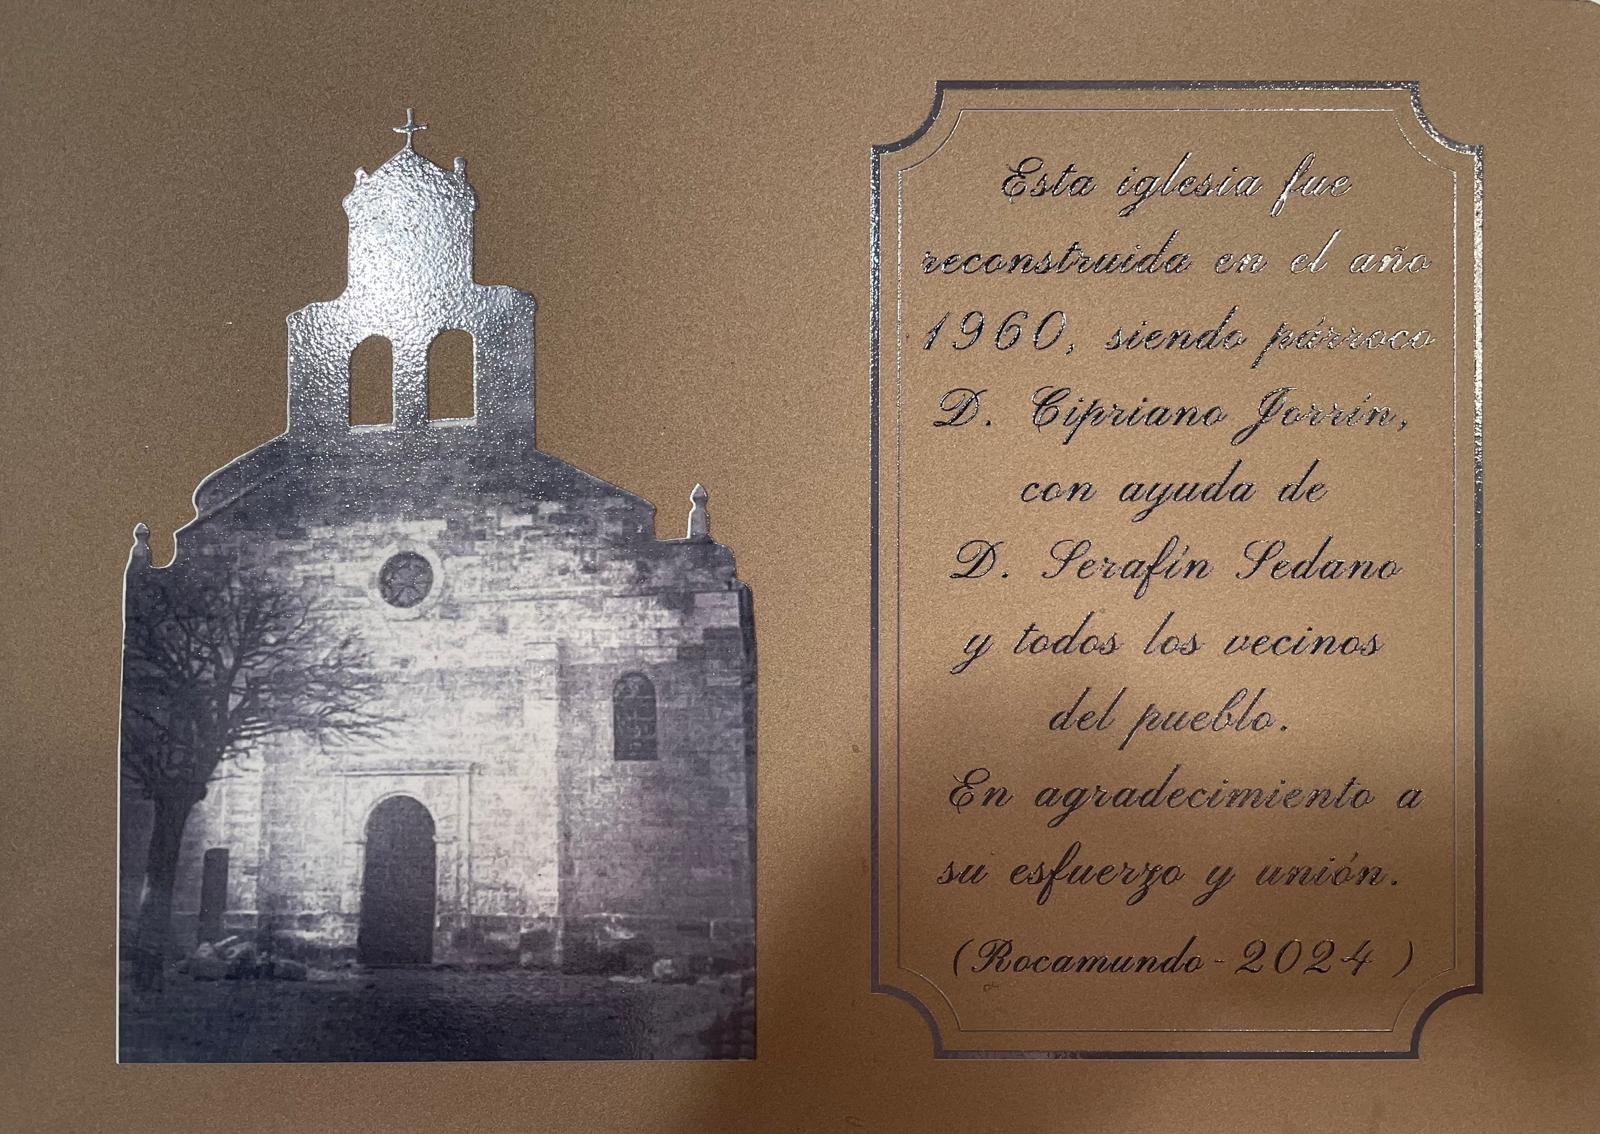 Esta iglesia fue
reconstruida en el año
1960, siendo párroco
D. Cipriano Jorrín,
con ayuda de
D. Serafín Sedano
y todos los vecinos
del pueblo.
En agradecimiento a
su esfuerzo y unión.
(Rocamundo-2024 )